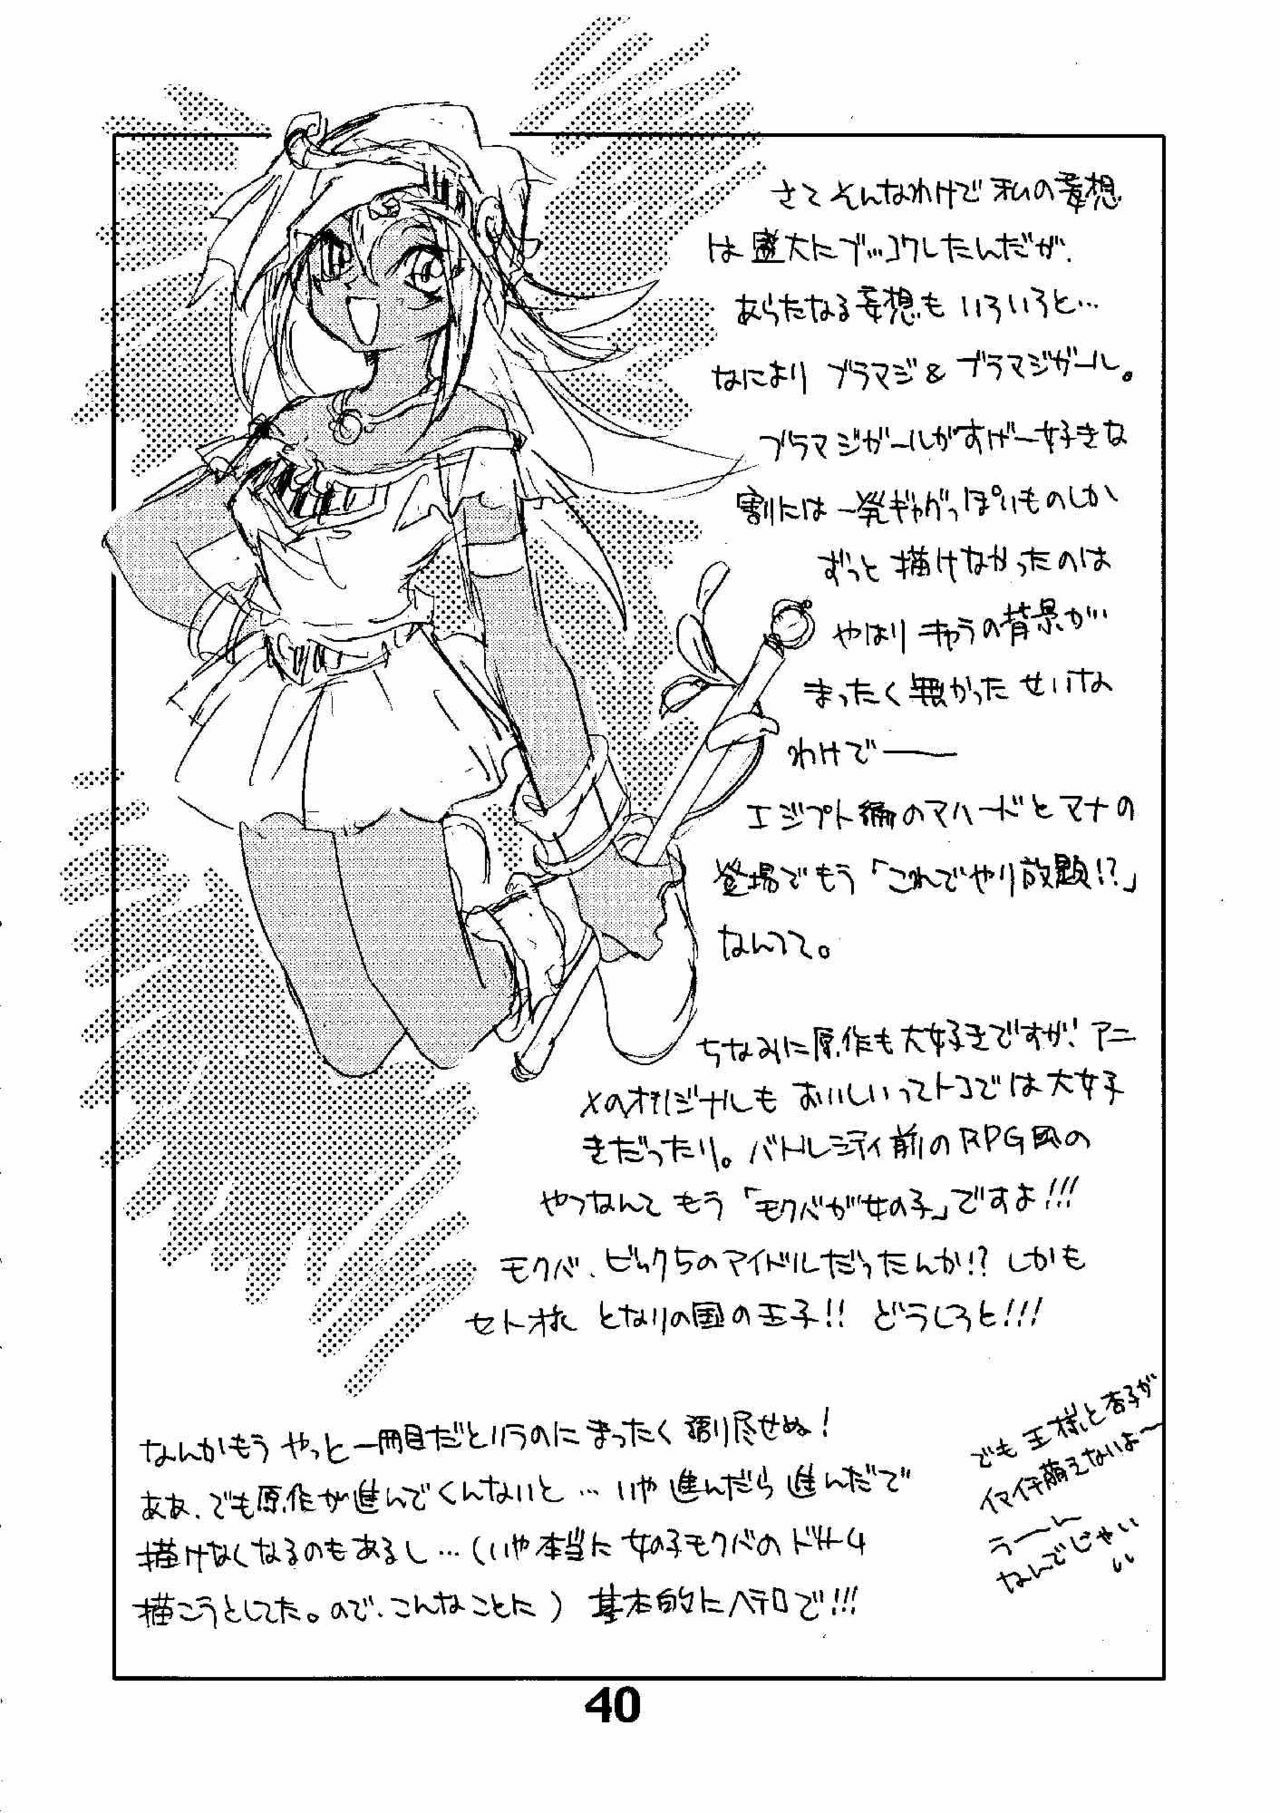 さてそんなわけで私の妄想
は盛大にブッコワしたんだが、
あらたなる妄想もいろいろと…
なにより ブラマジ & ブラマジガール。
ブラマジガールがすげー好きな
割には一発ギャグっぽいものしか
ずっと描けなかったのは
やはりキャラの背景が
まったく無かったせいな
わけで――
エジプト編のマハードとマナの
登場でもう「これでやり放題!?」
なんてて。
ちなみに原作も大好きですが、アニ
メのオリジナルもおいしいってトコでは大好
きだったり。バトルシティ前のRPG風の
やつなんてもう「モクバが女の子」ですよ!!!
モクバ、ビック5のアイドルだったんか!? しかも
セト となりの国の王子!! どうしろと!!!
でも王様と杏子が
イマイチ萌えないよ〜
うーん
なんでじゃい
なんかもうやっと一冊目だというのにまったく語り尽せぬ!
ああ、でも原作が進んでくんないと…いや進んだら進んだで
描けなくなるのもあるし…(いや本当に女の子モクバの
描こうとしてた。ので、こんなことに) 基本的にヘテロで!!!
40